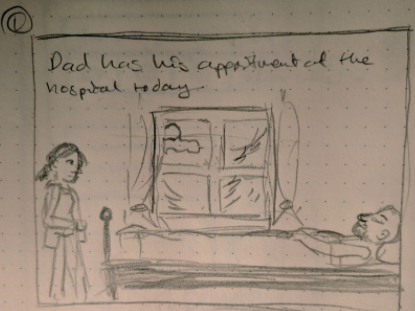 ①
Dad has his appointment at the
hospital today